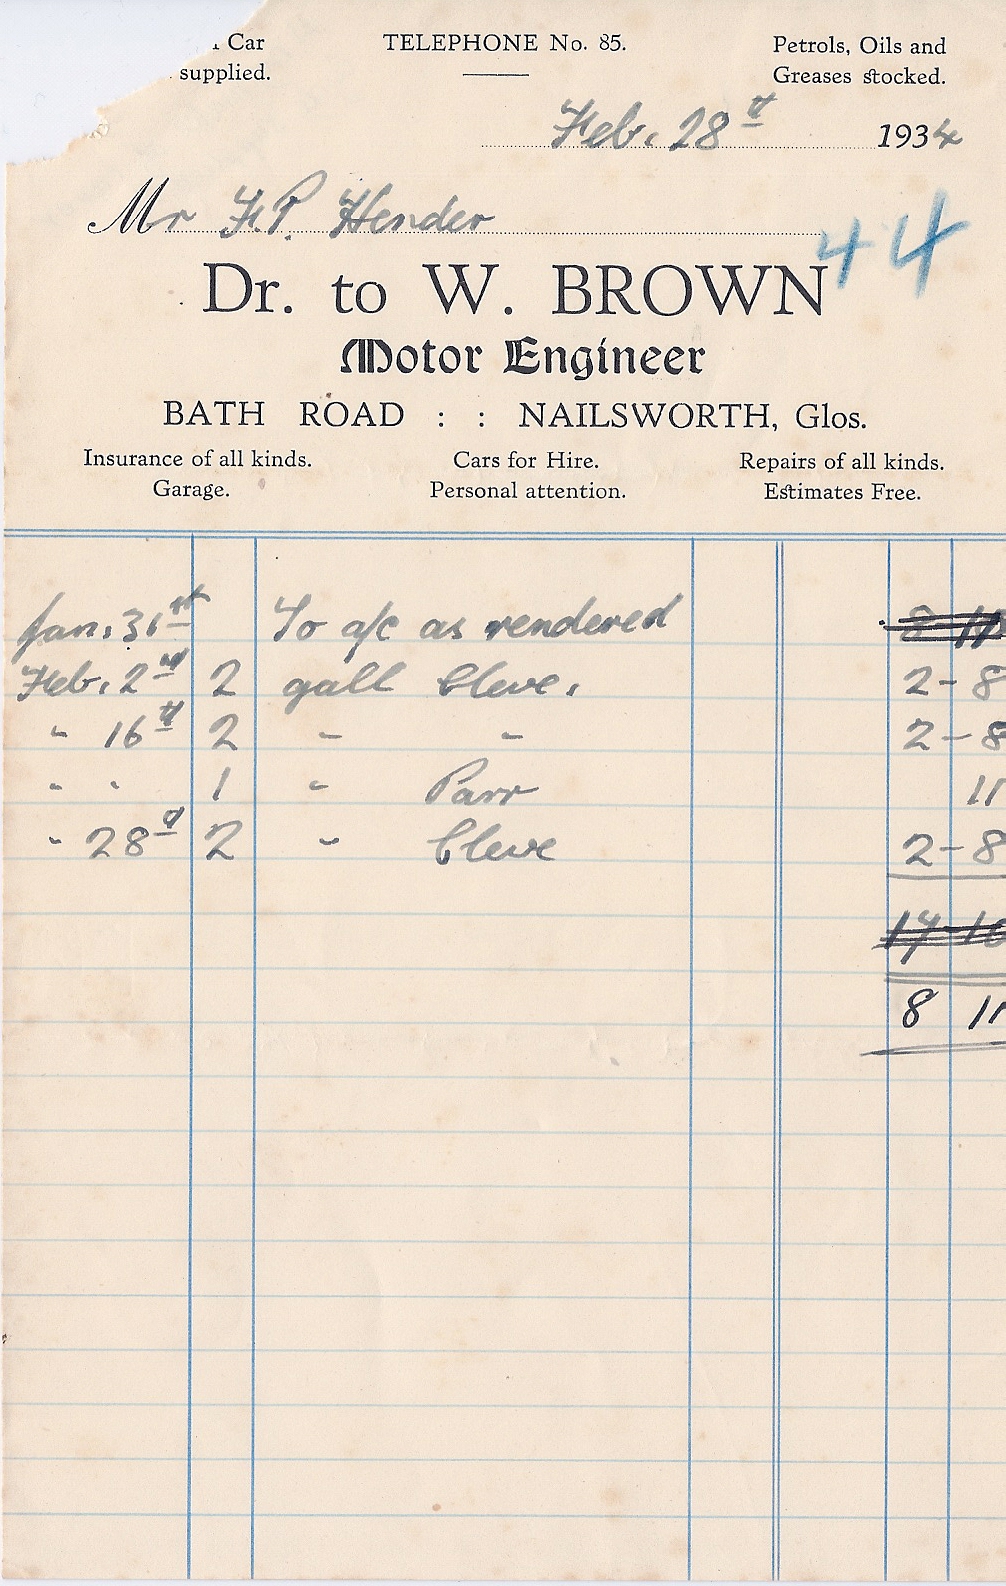 Car TELEPHONE No. 85. Petrols, Oils and
supplied. Greases stocked.
Feb. 28th 1934
Mr F.P. Hender
44
Dr. to W. BROWN
Motor Engineer
BATH ROAD : : NAILSWORTH, Glos.
Insurance of all kinds. Cars for Hire. Repairs of all kinds.
Garage. Personal attention. Estimates Free.
Jan. 31st To a/c as rendered 8 11
Feb. 2nd 2 gall Cleve. 2-8
" 16th 2 " " 2-8
" " 1 " Parr 11
" 28th 2 " Cleve 2-8
8 11